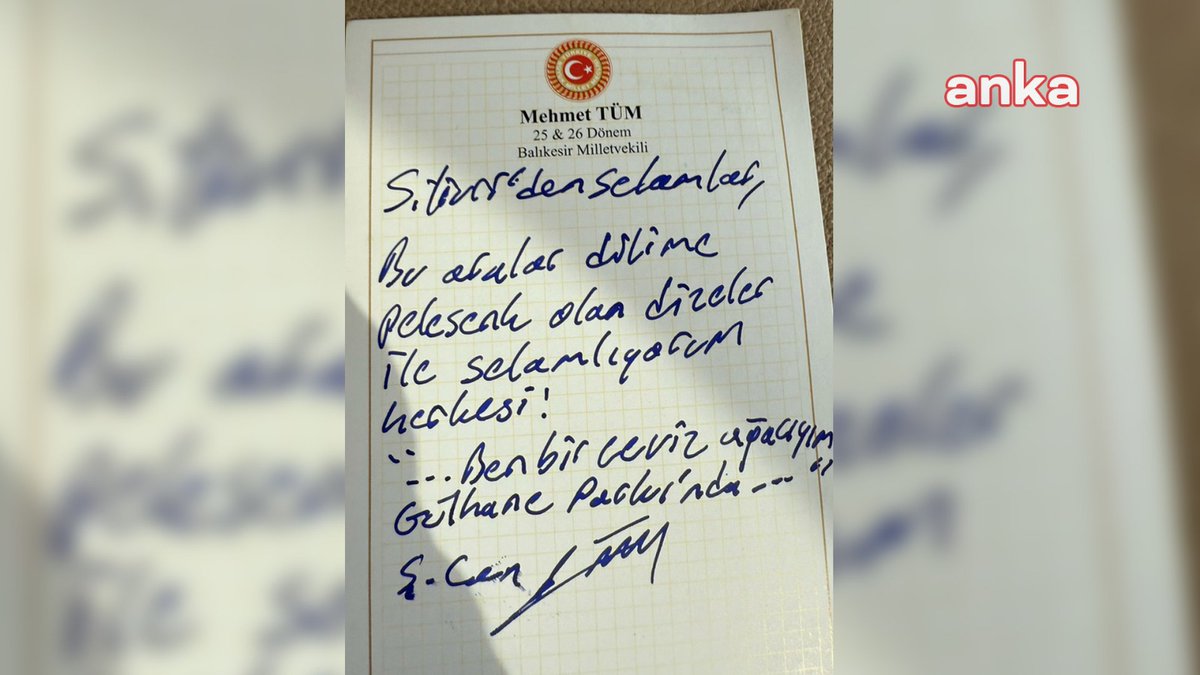 anka
Mehmet TÜM
25 & 26 Dönem
Balıkesir Milletvekili
Silivri'den selamlar,
Bu aralar dilime
pelesenk olan dizeler
ile selamlıyorum
herkesi!
"...Ben bir ceviz ağacıyım
Gülhane Parkı'nda..."
Ş. Can